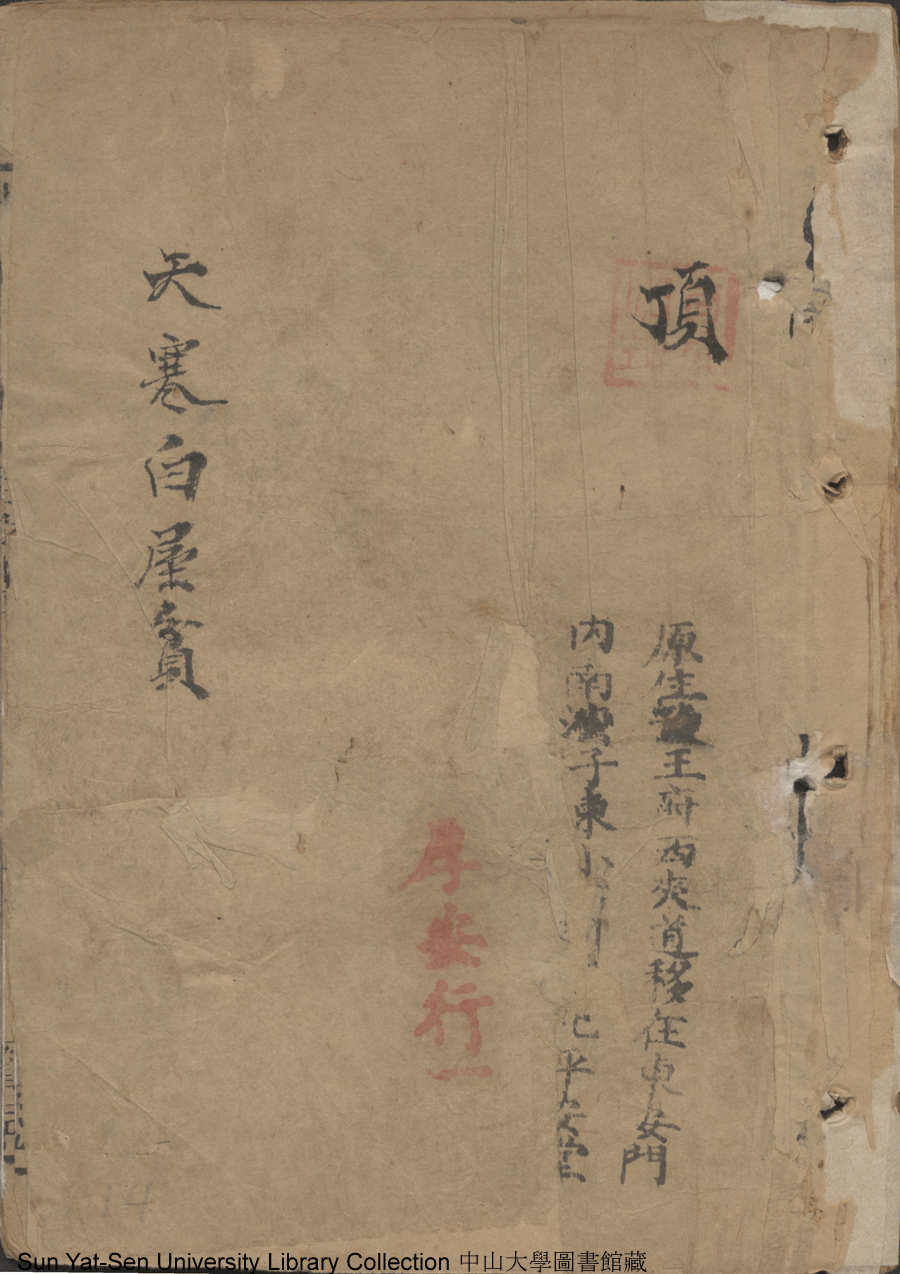 頂
原住王府西夾道移在東安門
内南灣子東小
平安堂
序安行一
天寒白屋貧
Sun Yat-Sen University Library Collection 中山大學圖書館藏